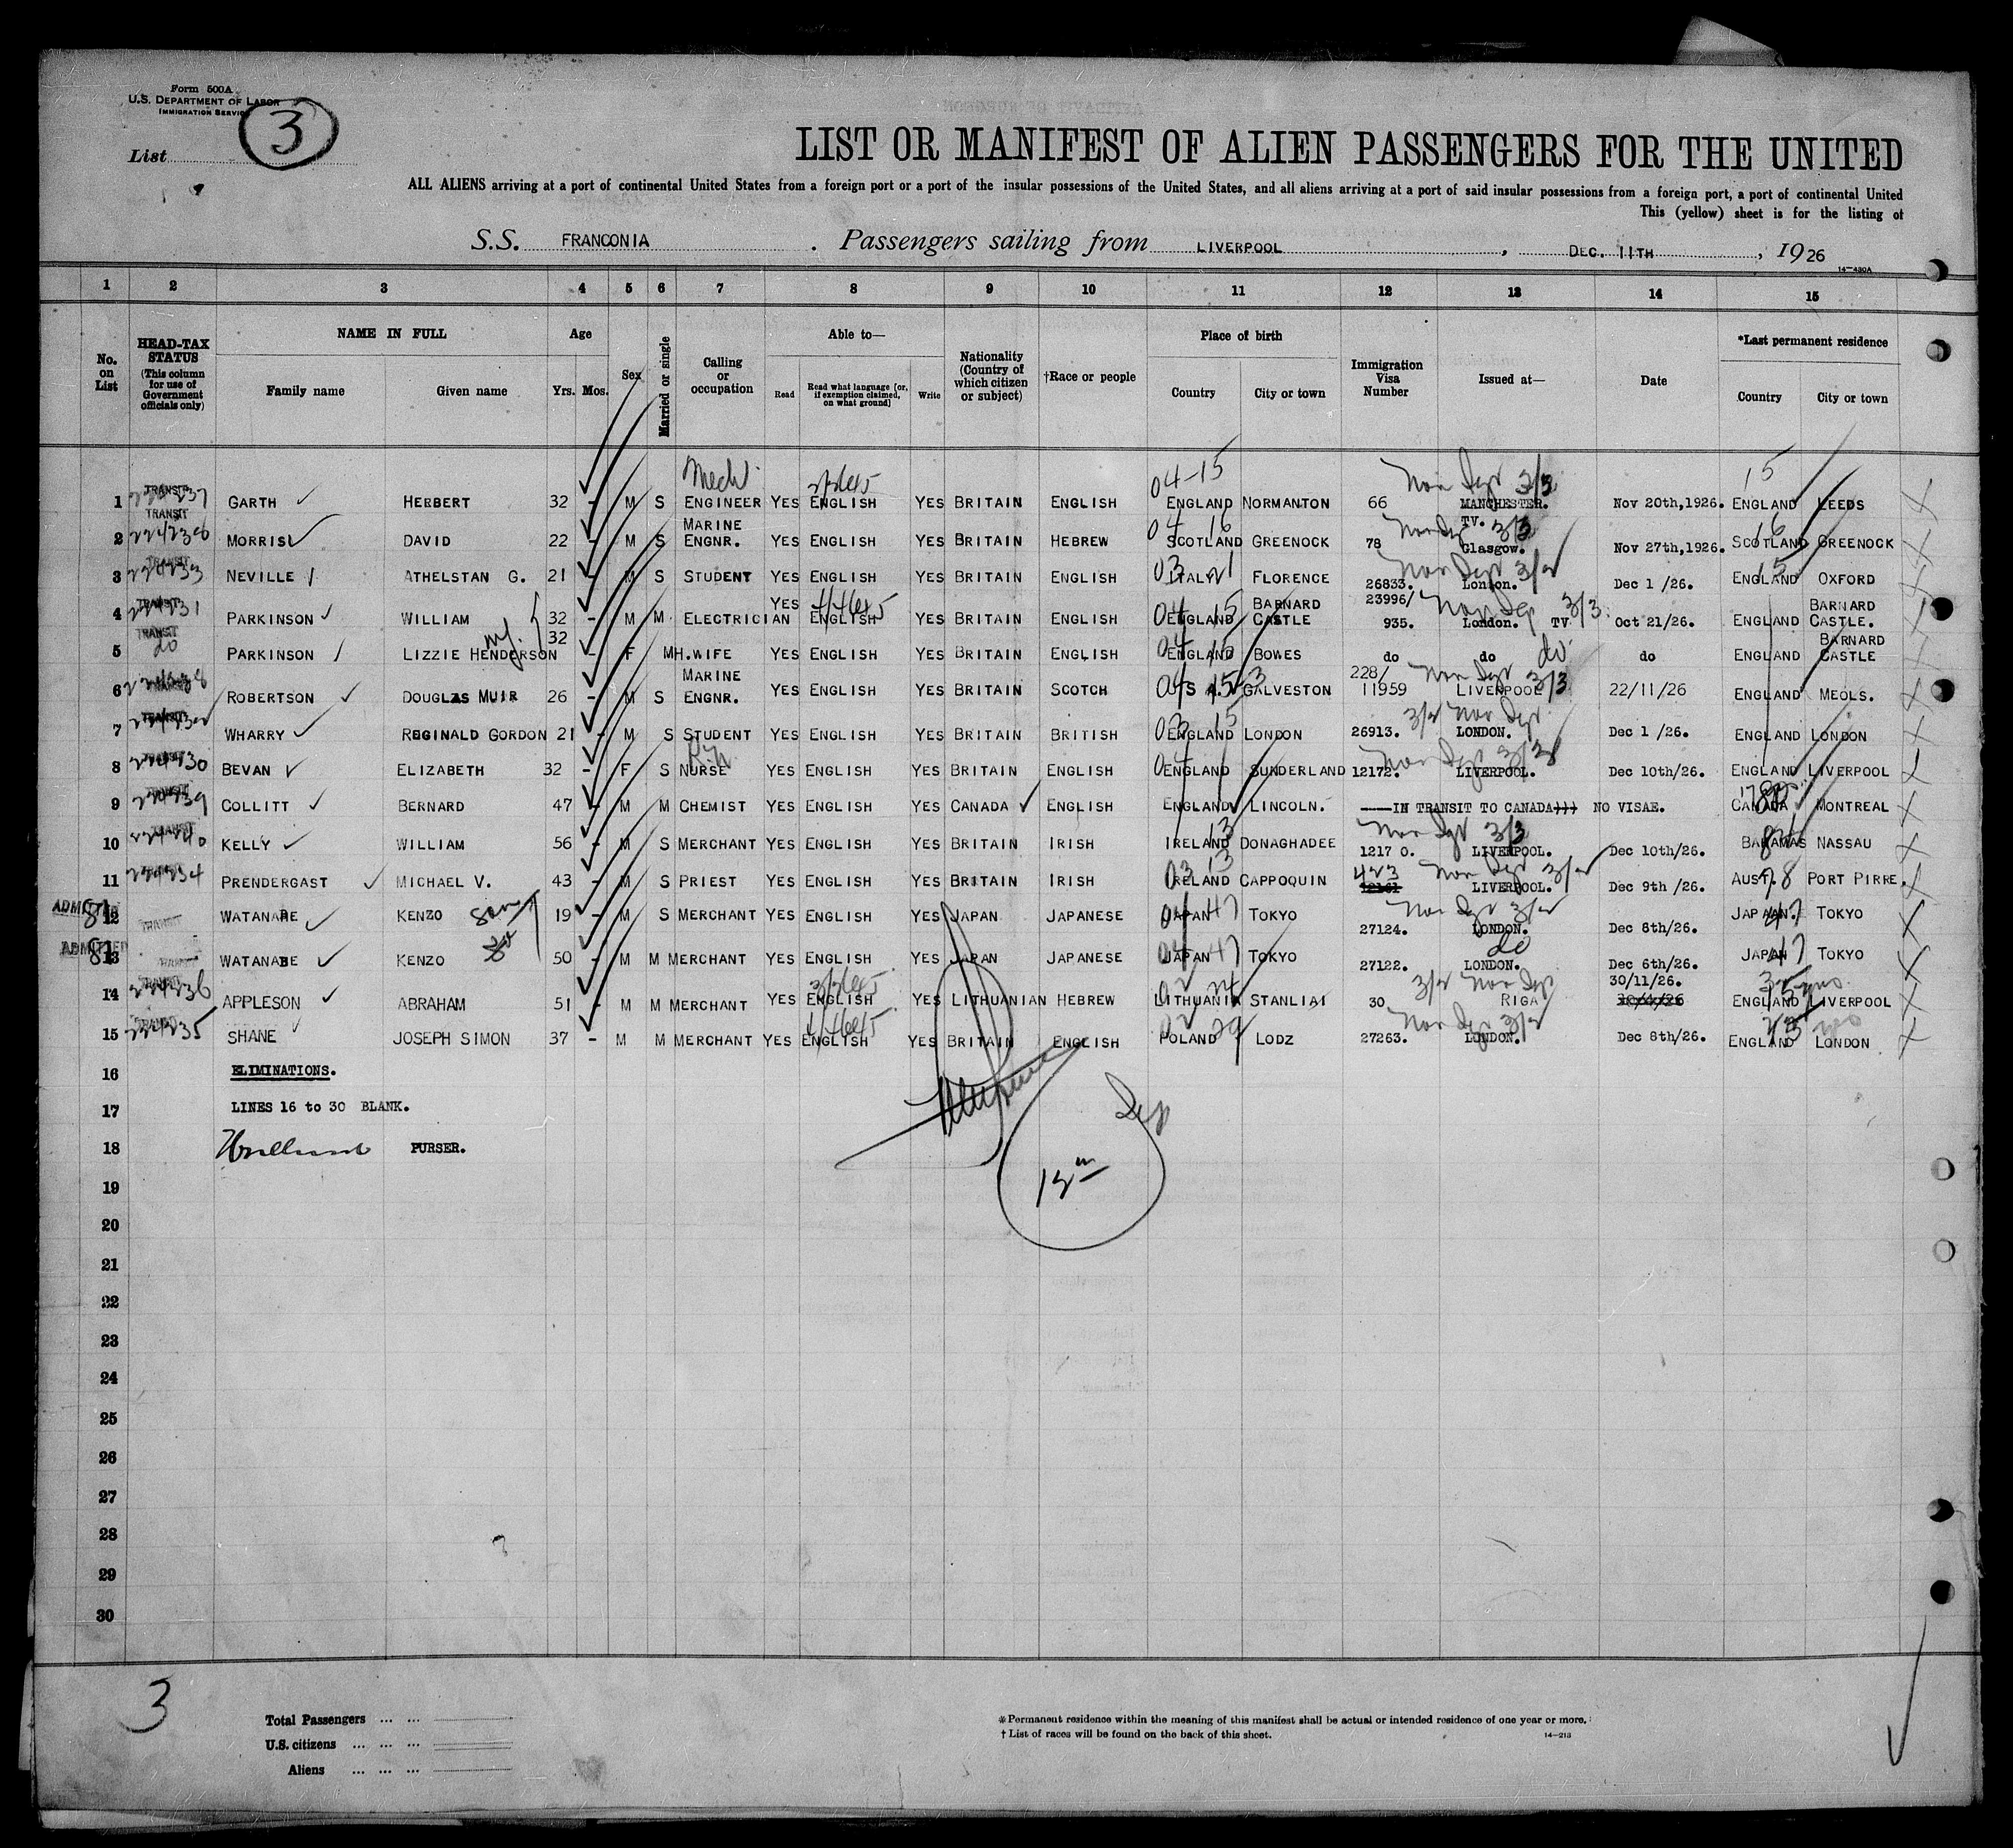 Form 500A
U.S. DEPARTMENT OF LABOR
IMMIGRATION SERVICE
List 3
LIST OR MANIFEST OF ALIEN PASSENGERS FOR THE UNITED
ALL ALIENS arriving at a port of continental United States from a foreign port or a port of the insular possessions of the United States, and all aliens arriving at a port of said insular possessions from a foreign port, a port of continental United
This (yellow) sheet is for the listing of
S.S. FRANCONIA . Passengers sailing from LIVERPOOL , DEC. 11TH , 1926
14-430A
1 2 3 4 5 6 7 8 9 10 11 12 13 14 15
No. on List
HEAD-TAX STATUS (This column for use of Government officials only)
NAME IN FULL
Family name Given name
Age
Yrs. Mos.
Sex
Married or single
Calling or occupation
Able to—
Read Read what language [or, if exemption claimed, on what ground] Write
Nationality (Country of which citizen or subject)
†Race or people
Place of birth
Country City or town
Immigration Visa Number
Issued at—
Date
*Last permanent residence
Country City or town
1 TRANSIT GARTH HERBERT 32 - M S Mechl. ENGINEER YES ENGLISH YES BRITAIN ENGLISH 04-15 ENGLAND NORMANTON 66 MANCHESTER. Nov 20th,1926. 15 ENGLAND LEEDS
2 TRANSIT MORRIS DAVID 22 - M S MARINE ENGNR. YES ENGLISH YES BRITAIN HEBREW 04 16 SCOTLAND GREENOCK 78 TV. 3/3 Glasgow. Nov 27th,1926. 16 SCOTLAND GREENOCK
3 TRANSIT NEVILLE ATHELSTAN G. 21 - M S STUDENT YES ENGLISH YES BRITAIN ENGLISH 03 21 ITALY FLORENCE 26833. London. Dec 1 /26. 15 ENGLAND OXFORD
4 TRANSIT PARKINSON WILLIAM 32 - M M ELECTRICIAN YES ENGLISH YES BRITAIN ENGLISH 04 15 ENGLAND BARNARD CASTLE 23996/ 935. London. TV 3/3 Oct 21/26. ENGLAND BARNARD CASTLE.
5 TRANSIT do PARKINSON LIZZIE HENDERSON wf. 32 - F M H.WIFE YES ENGLISH YES BRITAIN ENGLISH 04 15 ENGLAND BOWES do do do do ENGLAND BARNARD CASTLE
6 ROBERTSON DOUGLAS MUIR 26 - M S MARINE ENGNR. YES ENGLISH YES BRITAIN SCOTCH GALVESTON 228/ 11959 LIVERPOOL 3/3 22/11/26 ENGLAND MEOLS.
7 TRANSIT WHARRY REGINALD GORDON 21 - M S STUDENT YES ENGLISH YES BRITAIN BRITISH 03 15 ENGLAND LONDON 26913. LONDON. Dec 1 /26. ENGLAND LONDON
8 TRANSIT BEVAN ELIZABETH 32 - F S NURSE YES ENGLISH YES BRITAIN ENGLISH 04 ENGLAND SUNDERLAND 12172. LIVERPOOL. Dec 10th/26. ENGLAND LIVERPOOL
9 TRANSIT COLLITT BERNARD 47 - M M CHEMIST YES ENGLISH YES CANADA ENGLISH ENGLAND LINCOLN. ——IN TRANSIT TO CANADA))) NO VISAE. CANADA MONTREAL
10 TRANSIT KELLY WILLIAM 56 - M S MERCHANT YES ENGLISH YES BRITAIN IRISH 13 IRELAND DONAGHADEE 1217 0. 3/3 LIVERPOOL. Dec 10th/26. BAHAMAS NASSAU
11 TRANSIT PRENDERGAST MICHAEL V. 43 - M S PRIEST YES ENGLISH YES BRITAIN IRISH 03 13 IRELAND CAPPOQUIN 423 12161 LIVERPOOL. Dec 9th /26. AUST. 78 PORT PIRRE.
ADMITTED 12 TRANSIT WATANABE KENZO son 19 - M S MERCHANT YES ENGLISH YES JAPAN JAPANESE 04 47 JAPAN TOKYO 27124. LONDON. Dec 8th/26. JAPAN. 47 TOKYO
ADMITTED 13 TRANSIT WATANABE KENZO 50 - M M MERCHANT YES ENGLISH YES JAPAN JAPANESE 04 47 JAPAN TOKYO 27122. do LONDON. Dec 6th/26. JAPAN 47 TOKYO
14 TRANSIT APPLESON ABRAHAM 51 - M M MERCHANT YES ENGLISH YES LITHUANIAN HEBREW LITHUANIA STANLIAI 30 RIGA 30/11/26. ENGLAND LIVERPOOL
15 TRANSIT SHANE JOSEPH SIMON 37 - M M MERCHANT YES ENGLISH YES BRITAIN ENGLISH POLAND LODZ 27263. LONDON. Dec 8th/26. ENGLAND LONDON
16 ELIMINATIONS.
17 LINES 16 to 30 BLANK.
18 PURSER.
19
20
21
22
23
24
25
26
27
28
29
30
3
Total Passengers ... ...
U.S. citizens ... ... ...
Aliens ... ... ...
*Permanent residence within the meaning of this manifest shall be actual or intended residence of one year or more.
†List of races will be found on the back of this sheet. 14-213